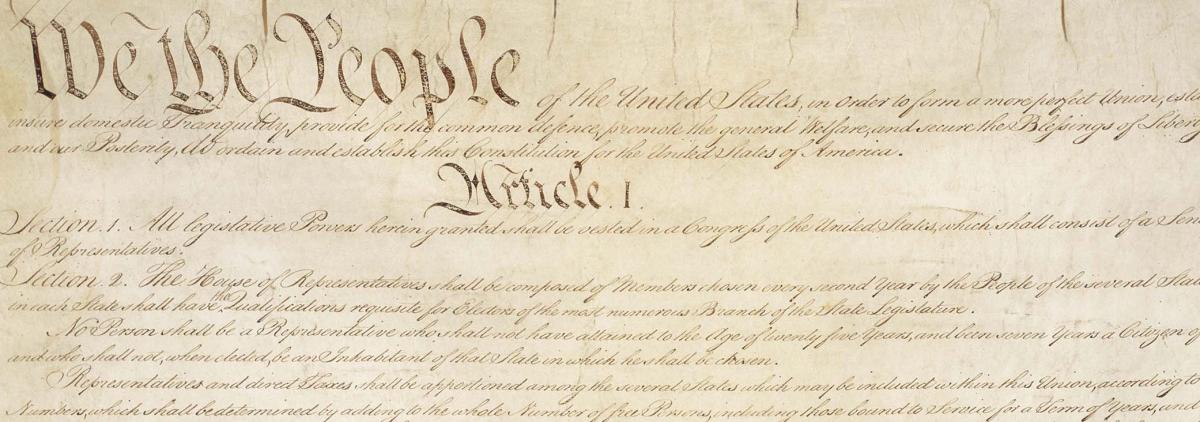 We the People of the United States, in Order to form a more perfect Union, esta
insure domestic Tranquility, provide for the common defence, promote the general Welfare, and secure the Blessings of Libert
and our Posterity, do ordain and establish this Constitution for the United States of America.
Article. I.
Section. 1. All legislative Powers herein granted shall be vested in a Congress of the United States, which shall consist of a Sen
of Representatives.
Section. 2. The House of Representatives shall be composed of Members chosen every second Year by the People of the several Stat
in each State shall have the Qualifications requisite for Electors of the most numerous Branch of the State Legislature.
No Person shall be a Representative who shall not have attained to the Age of twenty five Years, and been seven Years a Citizen of
and who shall not, when elected, be an Inhabitant of that State in which he shall be chosen.
Representatives and direct Taxes shall be apportioned among the several States which may be included within this Union, according to
Numbers, which shall be determined by adding to the whole Number of free Persons, including those bound to Service for a Term of Years, and